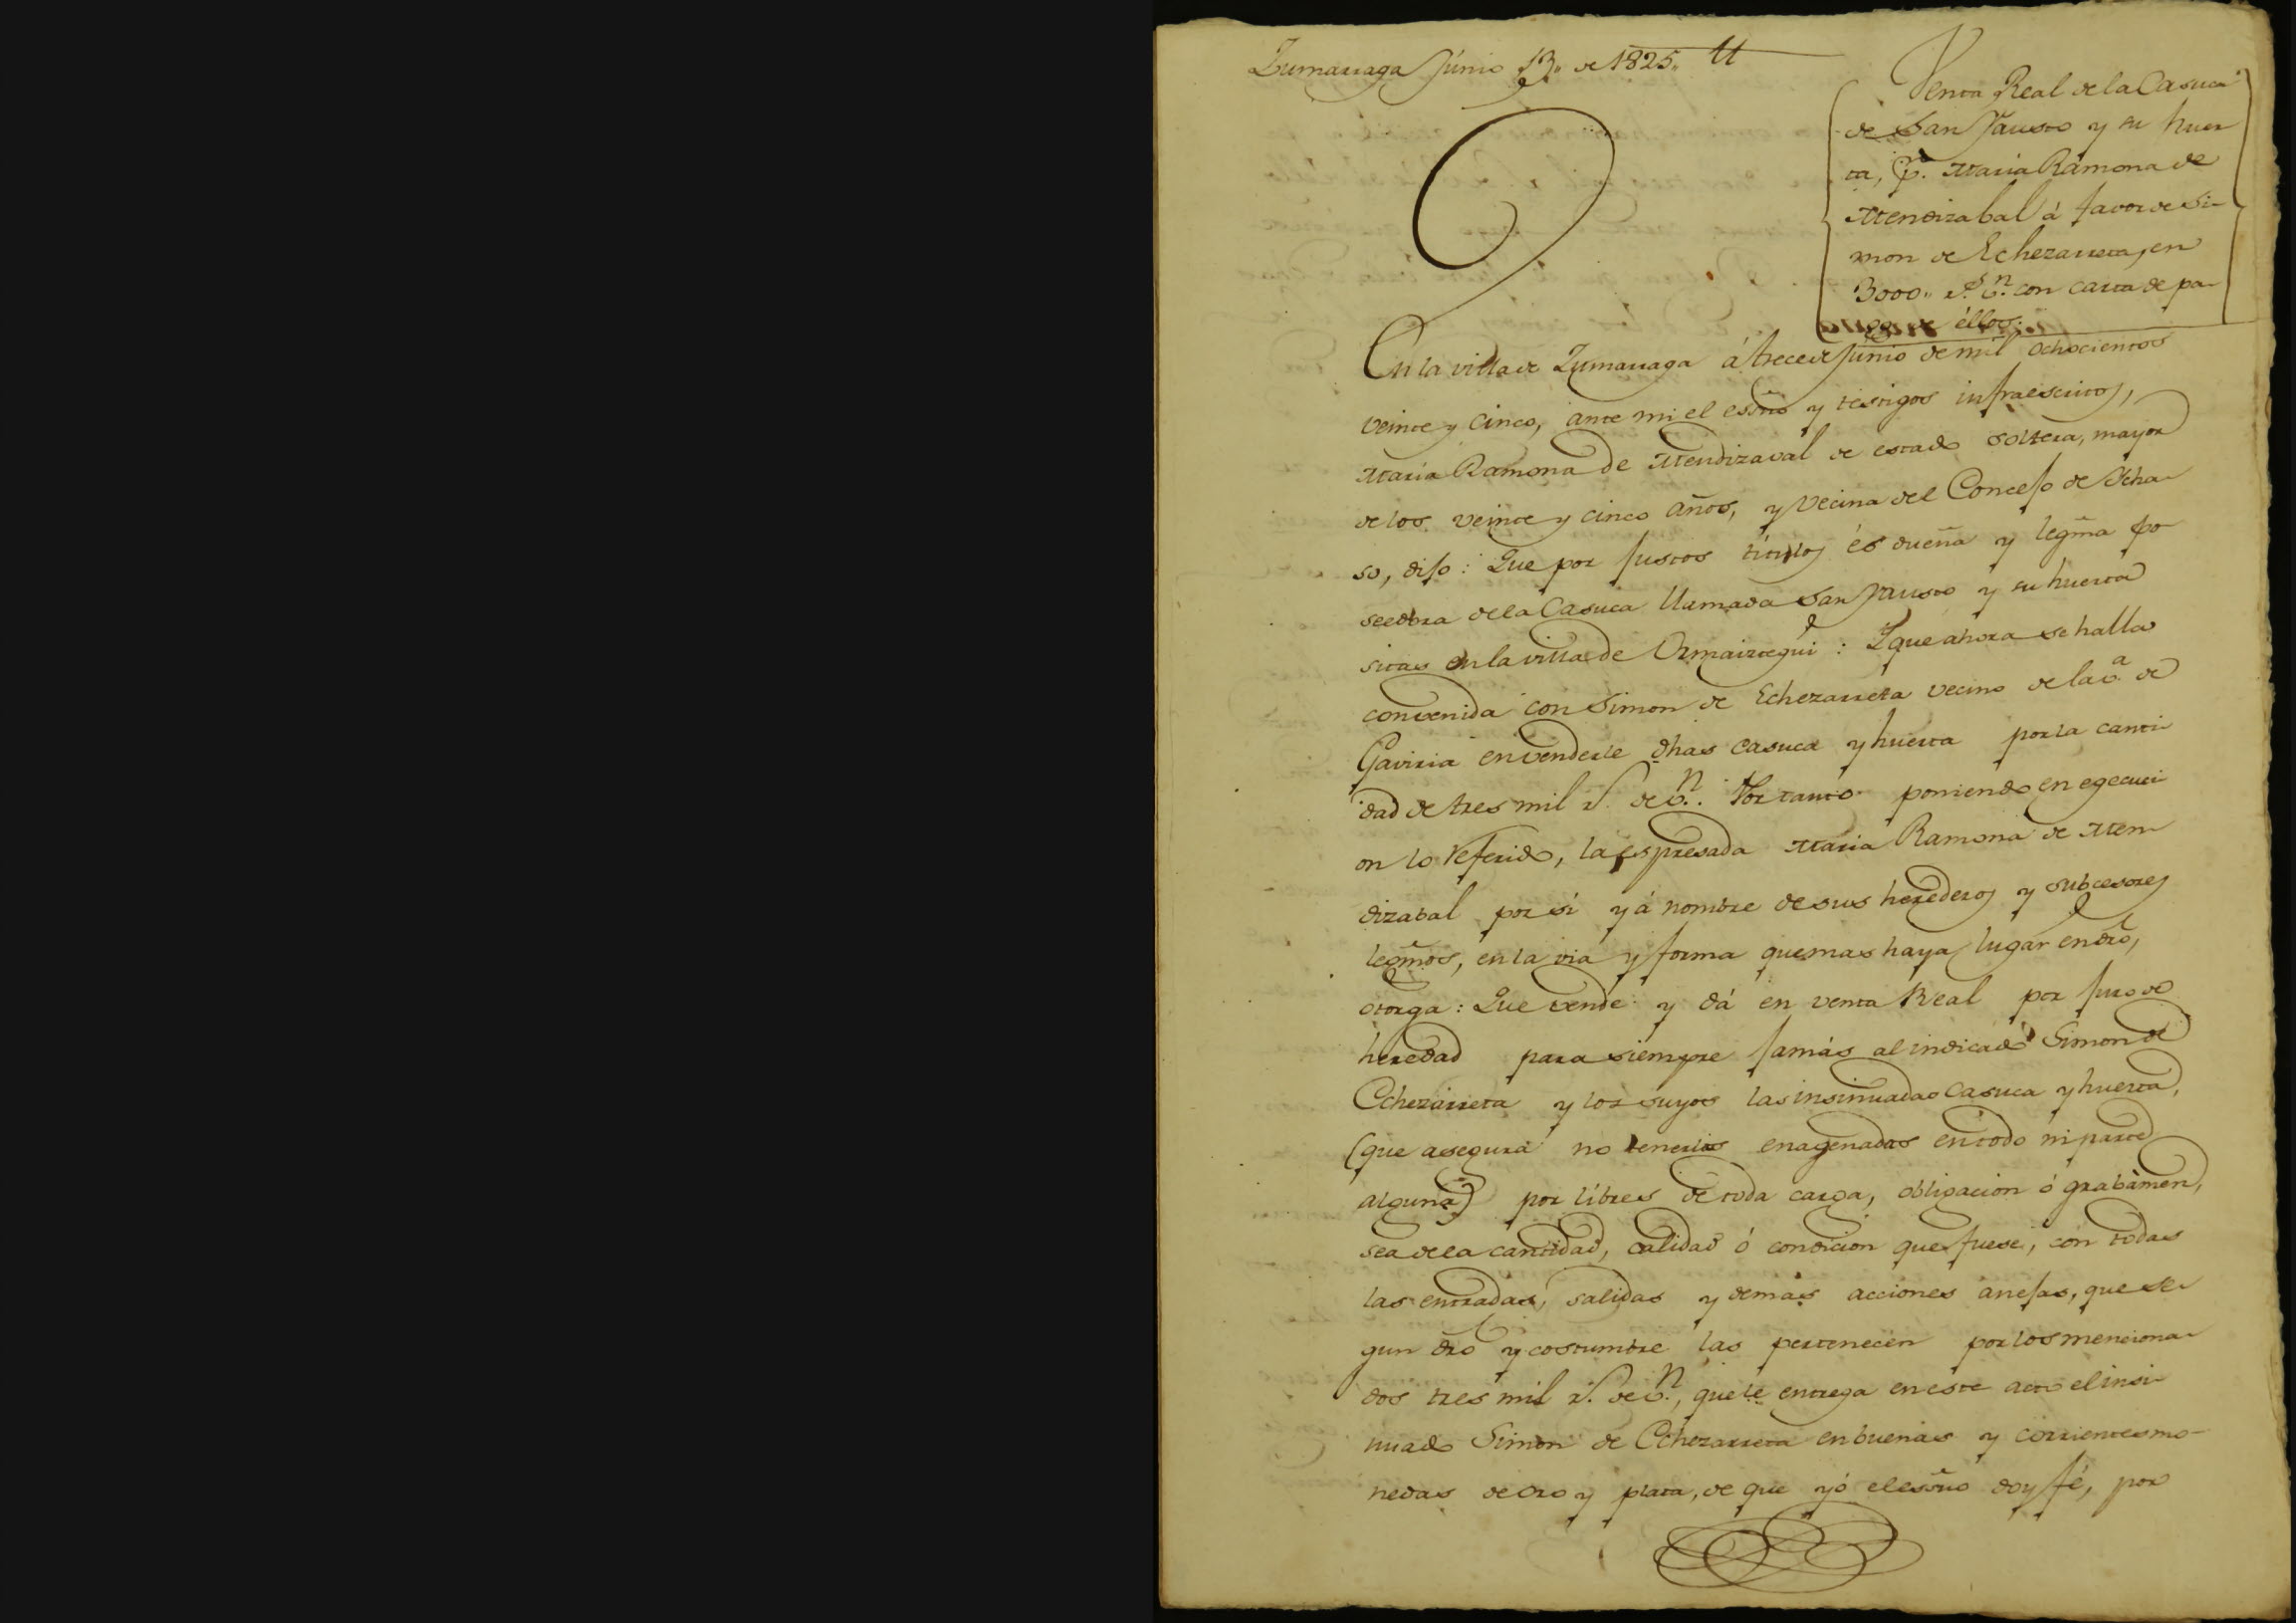 Zumarraga Júnio 13,, de 1825,,
Venta Real de la Casuca
de San Fausto y su huer
ta, Pr. Maria Ramona de
Mendizabal á favor de Si-
mon de Echezarreta, en
3000,, rs. vn. con carta de pa-
go de éllos.
En la villa de Zumarraga á trece de Junio de mil ochocientos
veinte y cinco, ante mi el essno y testigos infraescritos,
Maria Ramona de Mendizaval de estado soltera, mayor
de los veinte y cinco años, y vecina del Concejo de Ycha-
so, dijo: Que por justos titulos és dueña y legma po-
seedora de la Casuca llamada San Fausto y su huerta
sitas en la villa de Ormaiztegui: Y que ahora se halla
convenida con Simon de Echezarreta vecino de la va. de
Gaviria en venderle dhas casuca y huerta por la canti-
dad de tres mil rs. de vn. Por tanto poniendo en egecuci-
on lo referido, la espresada Maria Ramona de Men-
dizabal por sí y á nombre de sus herederos y subcesores
legmos, en la via y forma que mas haya lugar en dro,
otorga: Que vende y dá en venta Real por juro de
heredad para siempre jamás al indicado Simon de
Echezarreta y los suyos las insinuadas casuca y huerta,
(que asegura no tenerlas enagenadas en todo ni parte
alguna) por libres de toda carga, obligacion ó grabámen,
sea de la cantidad, calidad ó condicion que fuese, con todas
las entradas, salidas y demás acciones anejas, que se-
gun dro y costumbre las pertenecen por los menciona-
dos tres mil rs. de vn., que le entrega en este acto el insi-
nuado Simon de Echezarreta en buenas y corrientes mo-
nedas de oro y plata, de que yó el essno doy fé, por